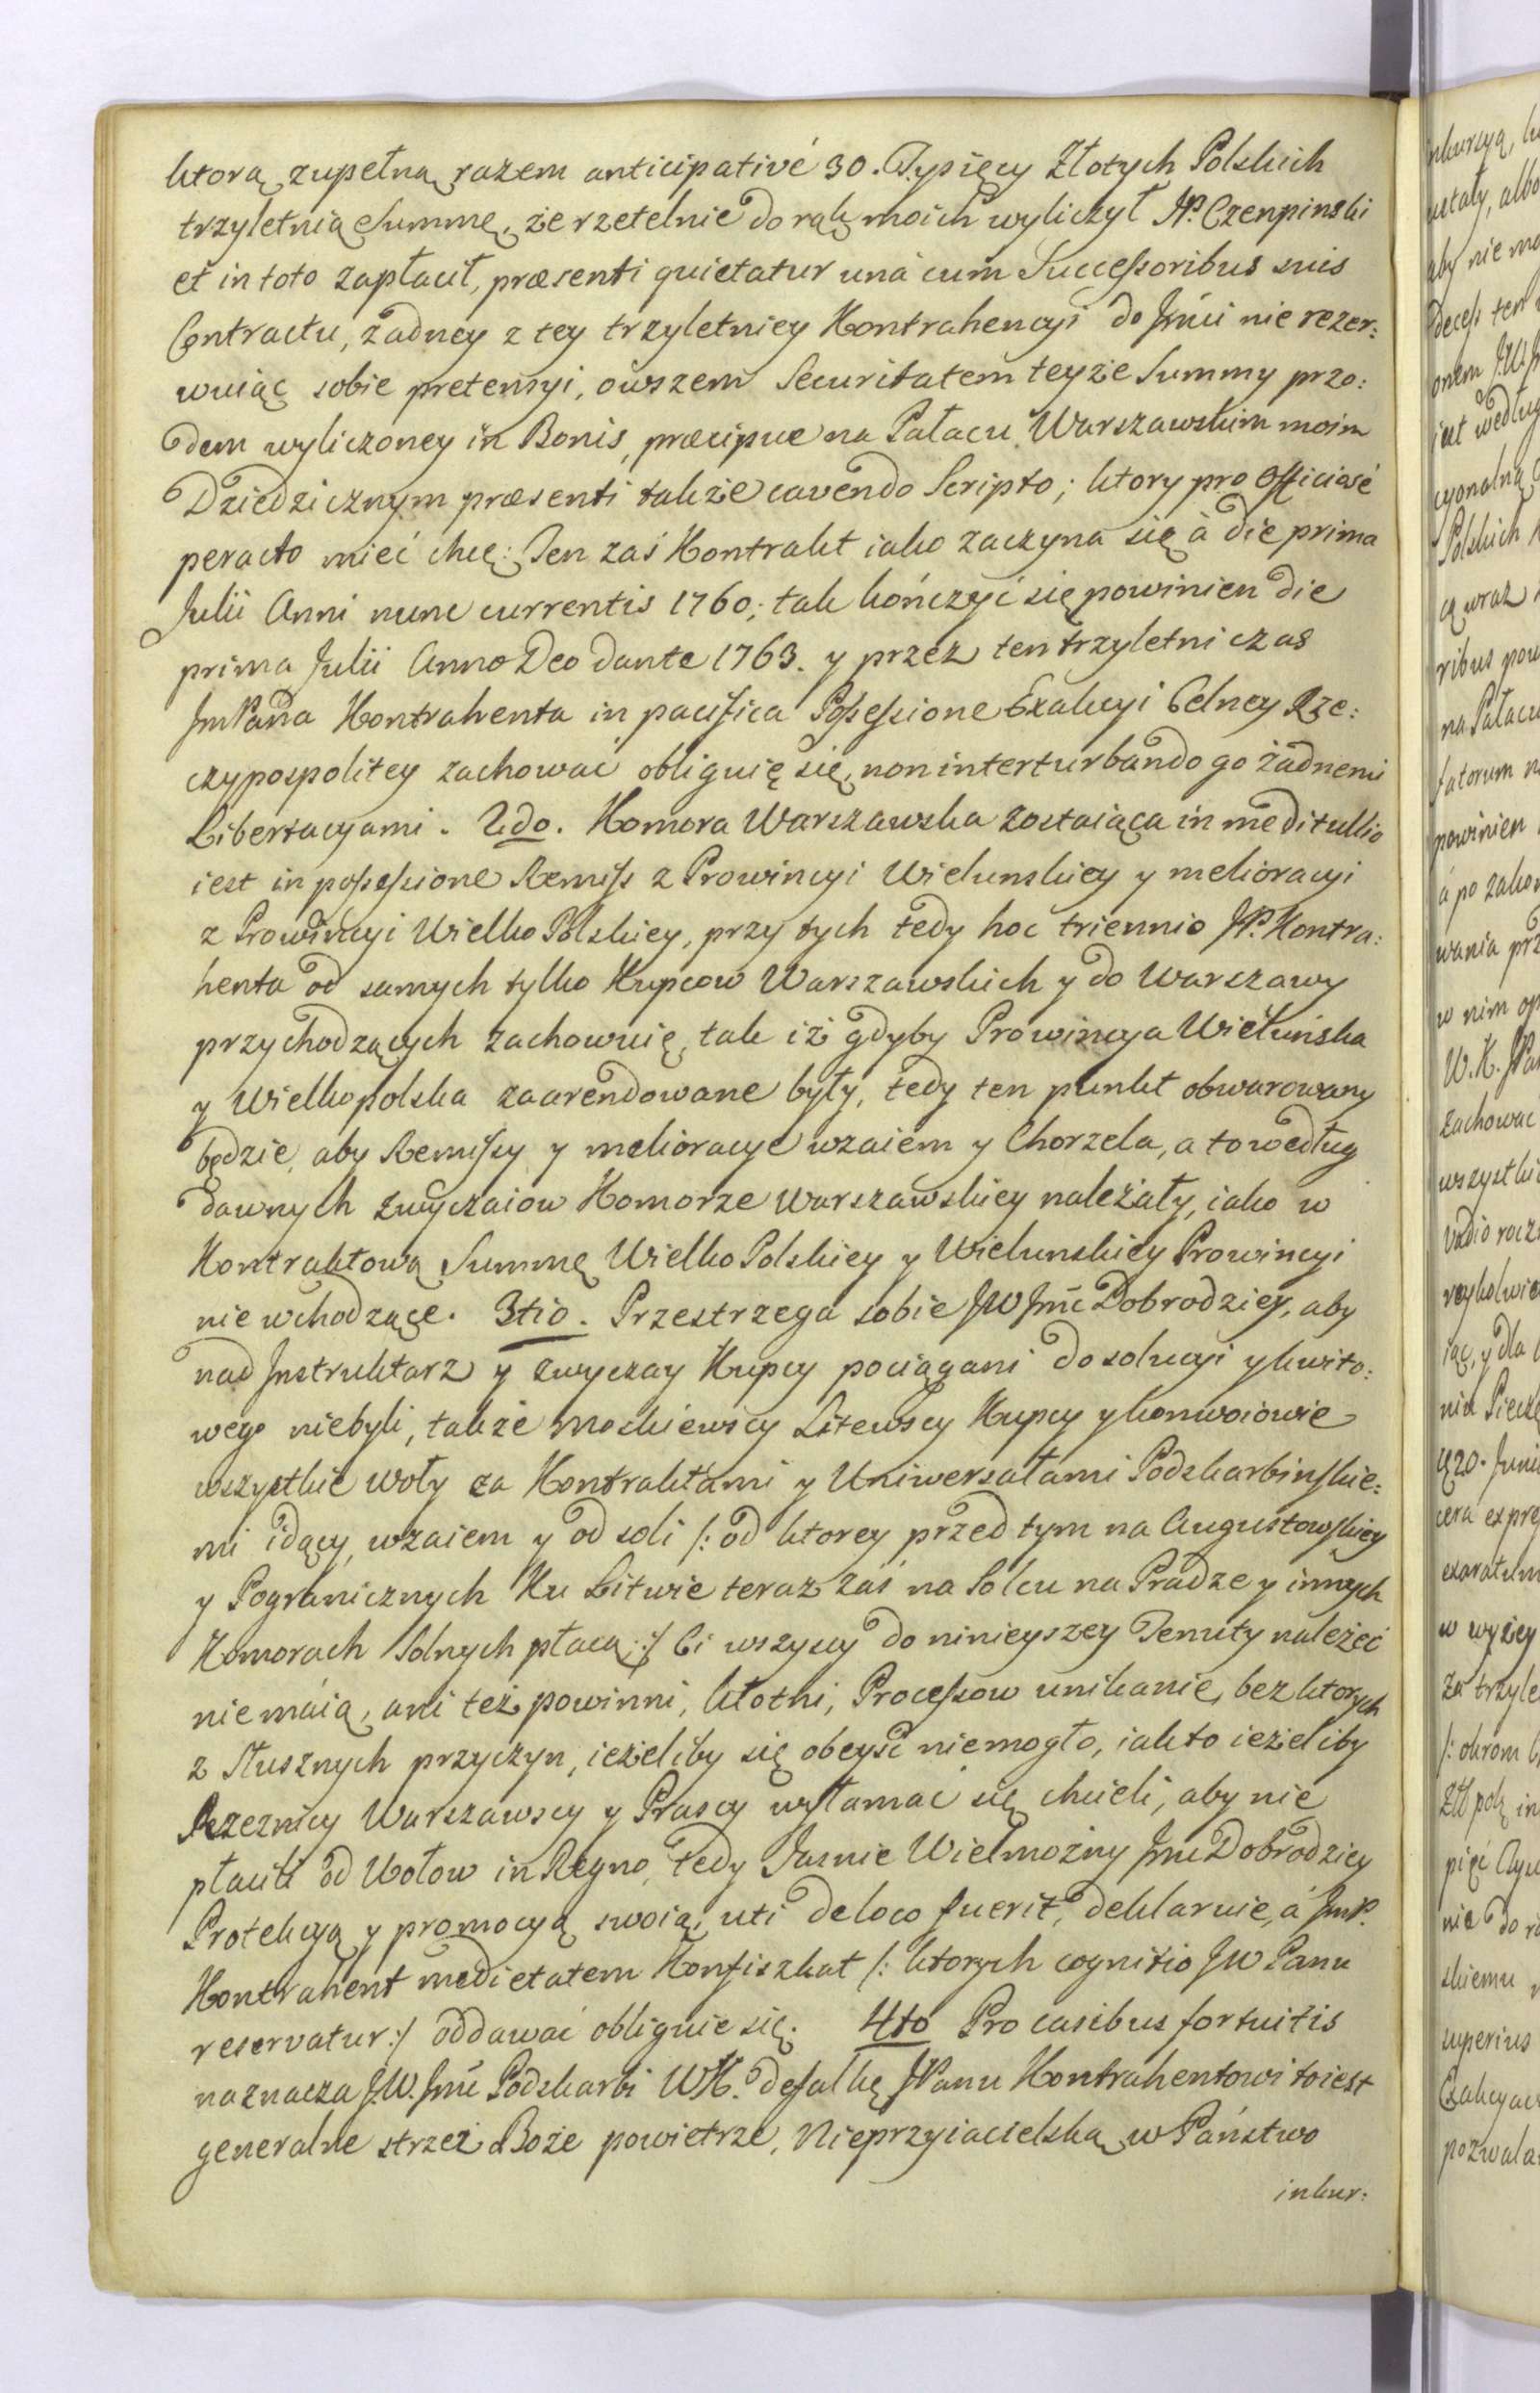 ktorą zupełną razem anticipativé 30. Tysięcy Złotych Polskich
trzyletnią Summę, że rzetelnie do rąk moich wyliczył JP. Czenpinski
et in toto zapłacił, præsenti quietatur una cum Successoribus suis
Contractu, żadney z tey trzyletniey Kontrahencyi do Jmci nie rezer:
wuiąc sobie pretensyi, owszem Securitatem teyże Summy przo:
dem wyliczoney in Bonis, præcipue na Pałacu Warszawskim moim
Dziedzicznym præsenti także cavendo Scripto; ktory pro Officiosé
peracto mieć chcę: Ten zaś Kontrakt iako zaczyna się à die prima
Julii Anni nunc currentis 1760; tak kończyć się powinien die
prima Julii Anno Deo dante 1763. y przez ten trzyletni czas
JmPana Kontrahenta in pacifica Possessione Exakcyi Celney Rze:
czypospolitey zachować obliguię się, non interturbando go żadnemi
Libertacyami. 2do. Komora Warszawska zostaiąca in meditullio
iest in possessione Remiss z Prowincyi Wielunskiey y melioracyi
z Prowincyi Wielko Polskiey, przy tych tedy hoc triennio JP. Kontra:
henta od samych tylko Kupcow Warszawskich y do Warszawy
przychodzących zachowuię, tak iż gdyby Prowincya Wieluńska
y Wielkopolska zaarendowane były, tedy ten punkt obwarowany
będzie, aby Remissy y melioracye wzaiem y Chorzela, a to według
dawnych zwyczaiow Komorze Warszawskiey należały, iako w
Kontraktową Summę Wielko Polskiey y Wielunskiey Prowincyi
nie wchodzące. 3tio. Przestrzega sobie JW Jmć Dobrodziey, aby
nad Instruktarz y zwyczay Kupcy pociągani do solucyi y kwito:
wego niebyli, także Moskiewscy Litewscy Kupcy y konwoiowie
wszystkie woły za Kontraktami y Uniwersałami Podskarbinskie:
mi idący, wzaiem y od soli /: od ktorey przed tym na Augustowskiey
y Pogranicznych Ku Litwie teraz zaś na Solcu na Pradze y innych
Komorach Solnych płacą :/ Ci wszyscy do ninieyszey Tenuty należeć
nie maią, ani też powinni, kłotni, Processow unikanie, bez ktorych
z słusznych przyczyn, ieżeliby się obeyść niemogło, iakto ieżeliby
Rzeznicy Warszawscy y Prascy wyłamać się chcieli, aby nie
płacili od Wołow in Regno, tedy Jasnie Wielmożny Jmć Dobrodziey
Protekcyą y promocyą swoią, uti de loco fuerit, deklaruie, á JmP.
Kontrahent medietatem Konfiskat /: ktorych cognitio JW Panu
reservatur :/ oddawać obliguie się. 4to Pro casibus fortuitis
naznacza J.W. Jmć Podskarbi WK. defalkę JPanu Kontrahentowi toiest
generalne strzeż Boże powietrze, Nieprzyiacielską w Państwo
inkur: